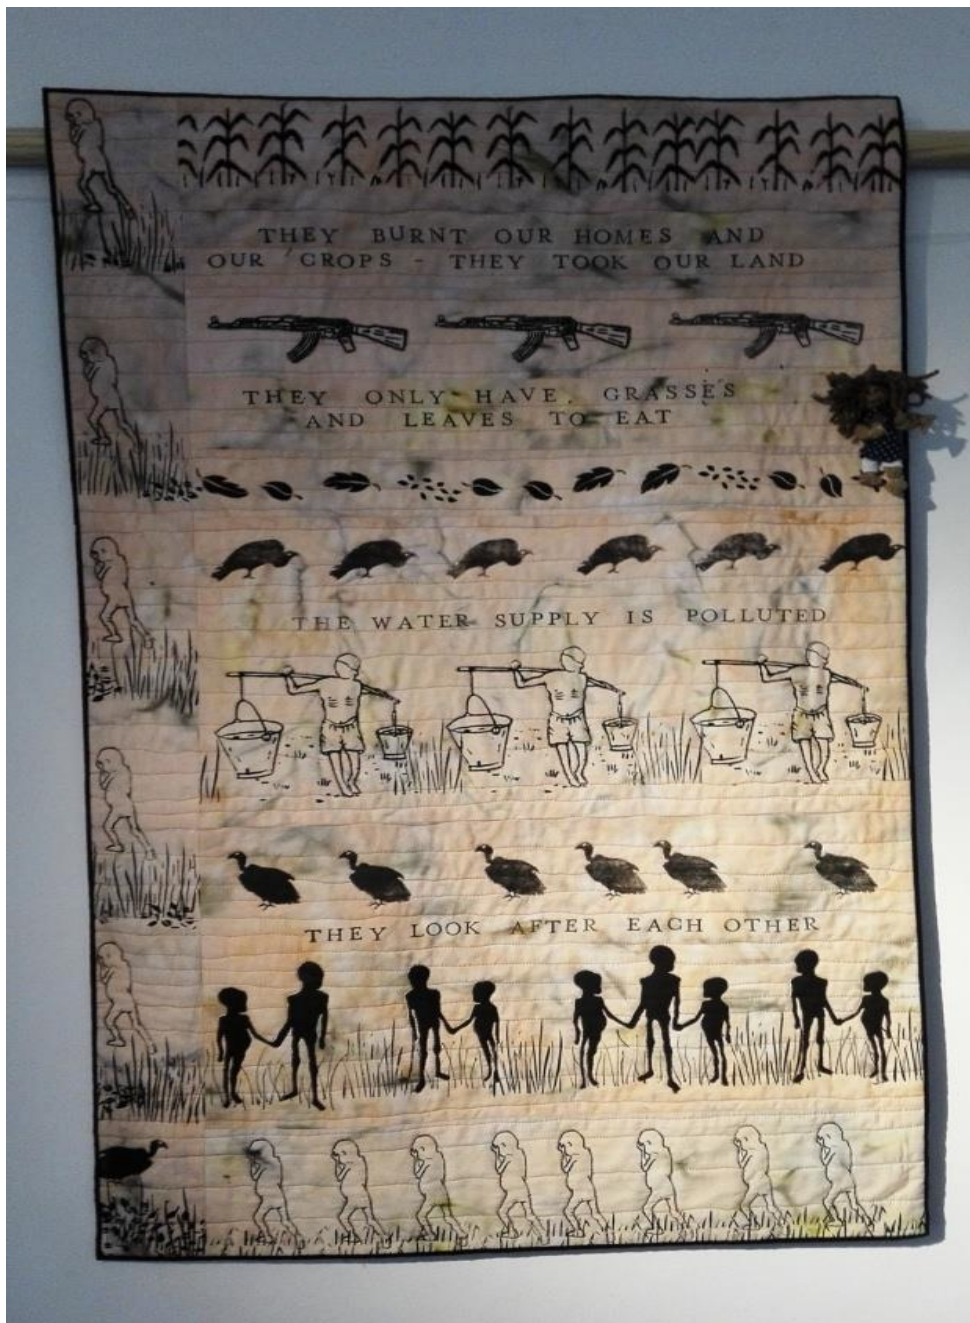 THEY BURNT OUR HOMES AND
OUR CROPS - THEY TOOK OUR LAND
THEY ONLY HAVE GRASSES
AND LEAVES TO EAT
THE WATER SUPPLY IS POLLUTED
THEY LOOK AFTER EACH OTHER